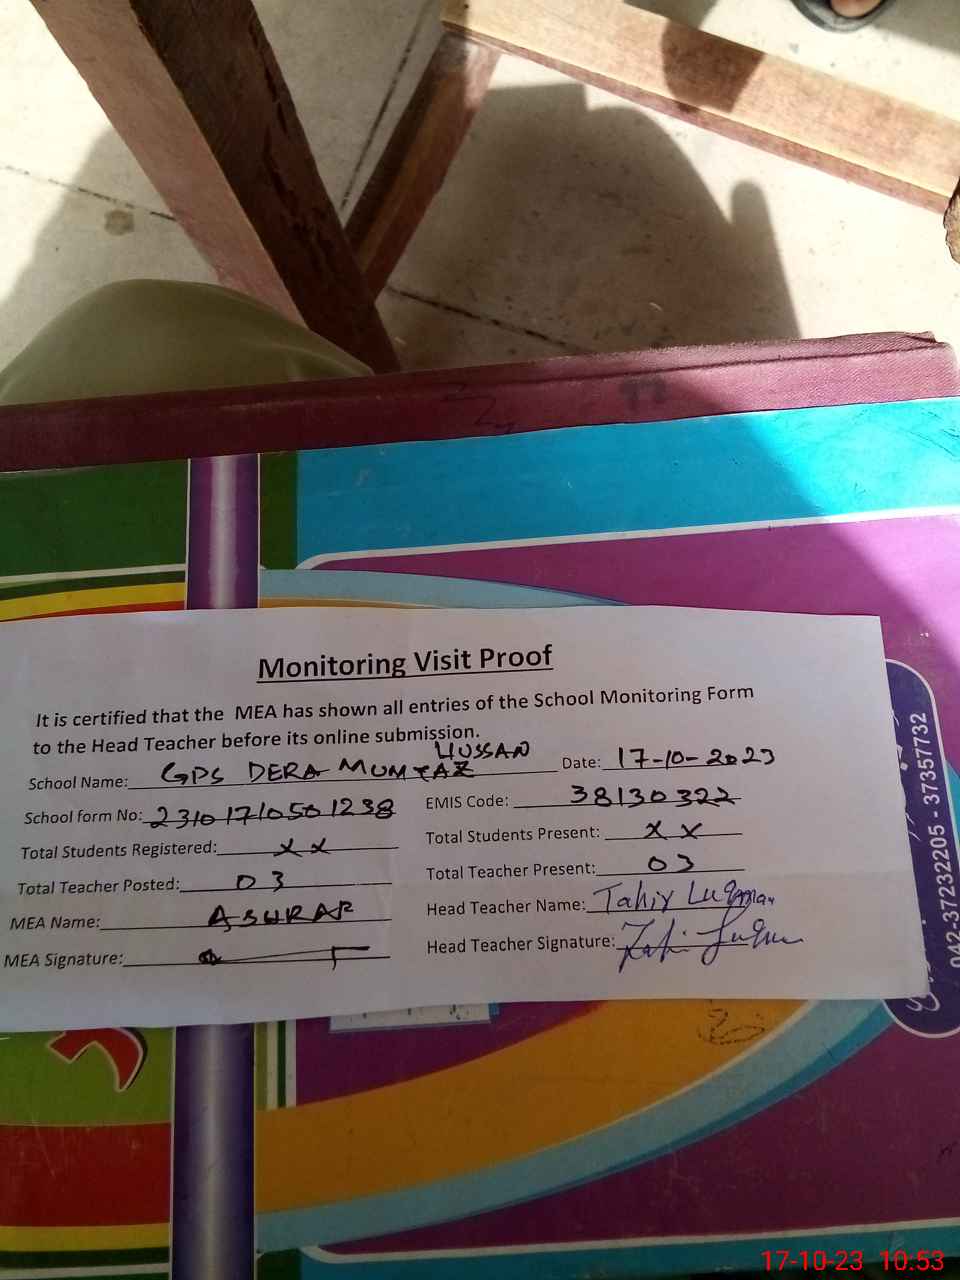 Monitoring Visit Proof
It is certified that the MEA has shown all entries of the School Monitoring Form
to the Head Teacher before its online submission.
School Name: GPS DERA MUMTAZ HUSSAN Date: 17-10-2023
School form No: 2310171050 1238 EMIS Code: 38130322
Total Students Registered: x x Total Students Present: x x
Total Teacher Posted: 03 Total Teacher Present: 03
MEA Name: ASHRAF Head Teacher Name: Tahir Luqman
MEA Signature: Head Teacher Signature:
042-37232205 - 37357732
17-10-23 10:53